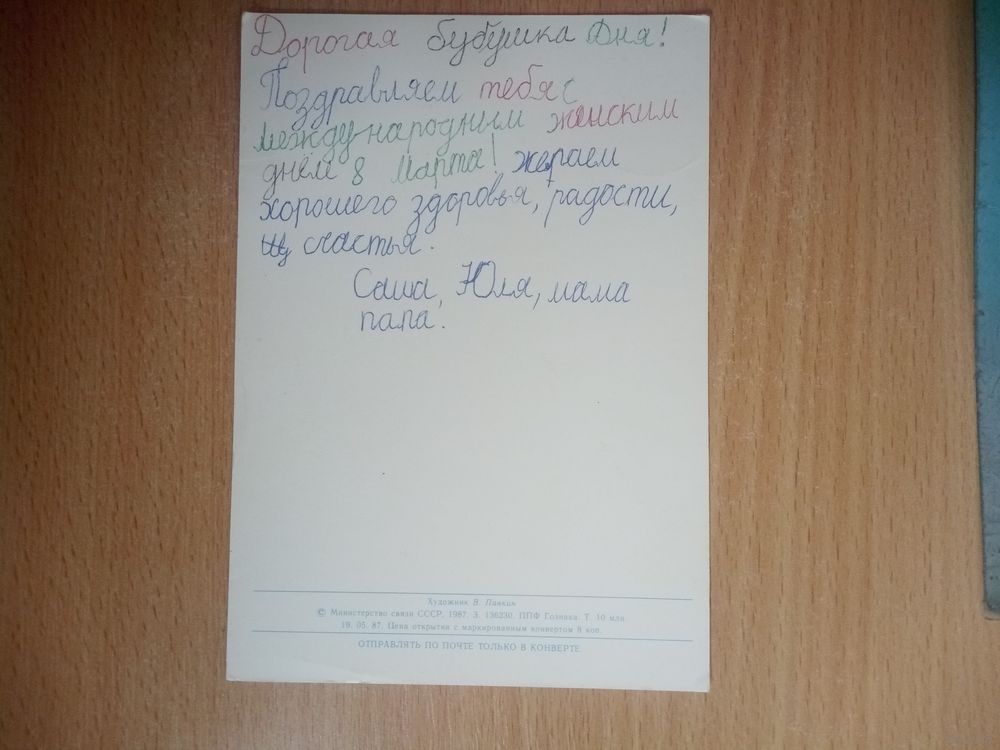 Дорогая бубушка Аня!
Поздравляем тебя с
международным женским
днём 8 Марта! желаем
хорошего здоровья, радости,
счастья.
Саша, Юля, мама
папа.
Художник В. Панкин
© Министерство связи СССР, 1987. З. 136230. ППФ Гознака. Т. 10 млн.
19. 05. 87. Цена открытки с маркированным конвертом 8 коп.
ОТПРАВЛЯТЬ ПО ПОЧТЕ ТОЛЬКО В КОНВЕРТЕ.